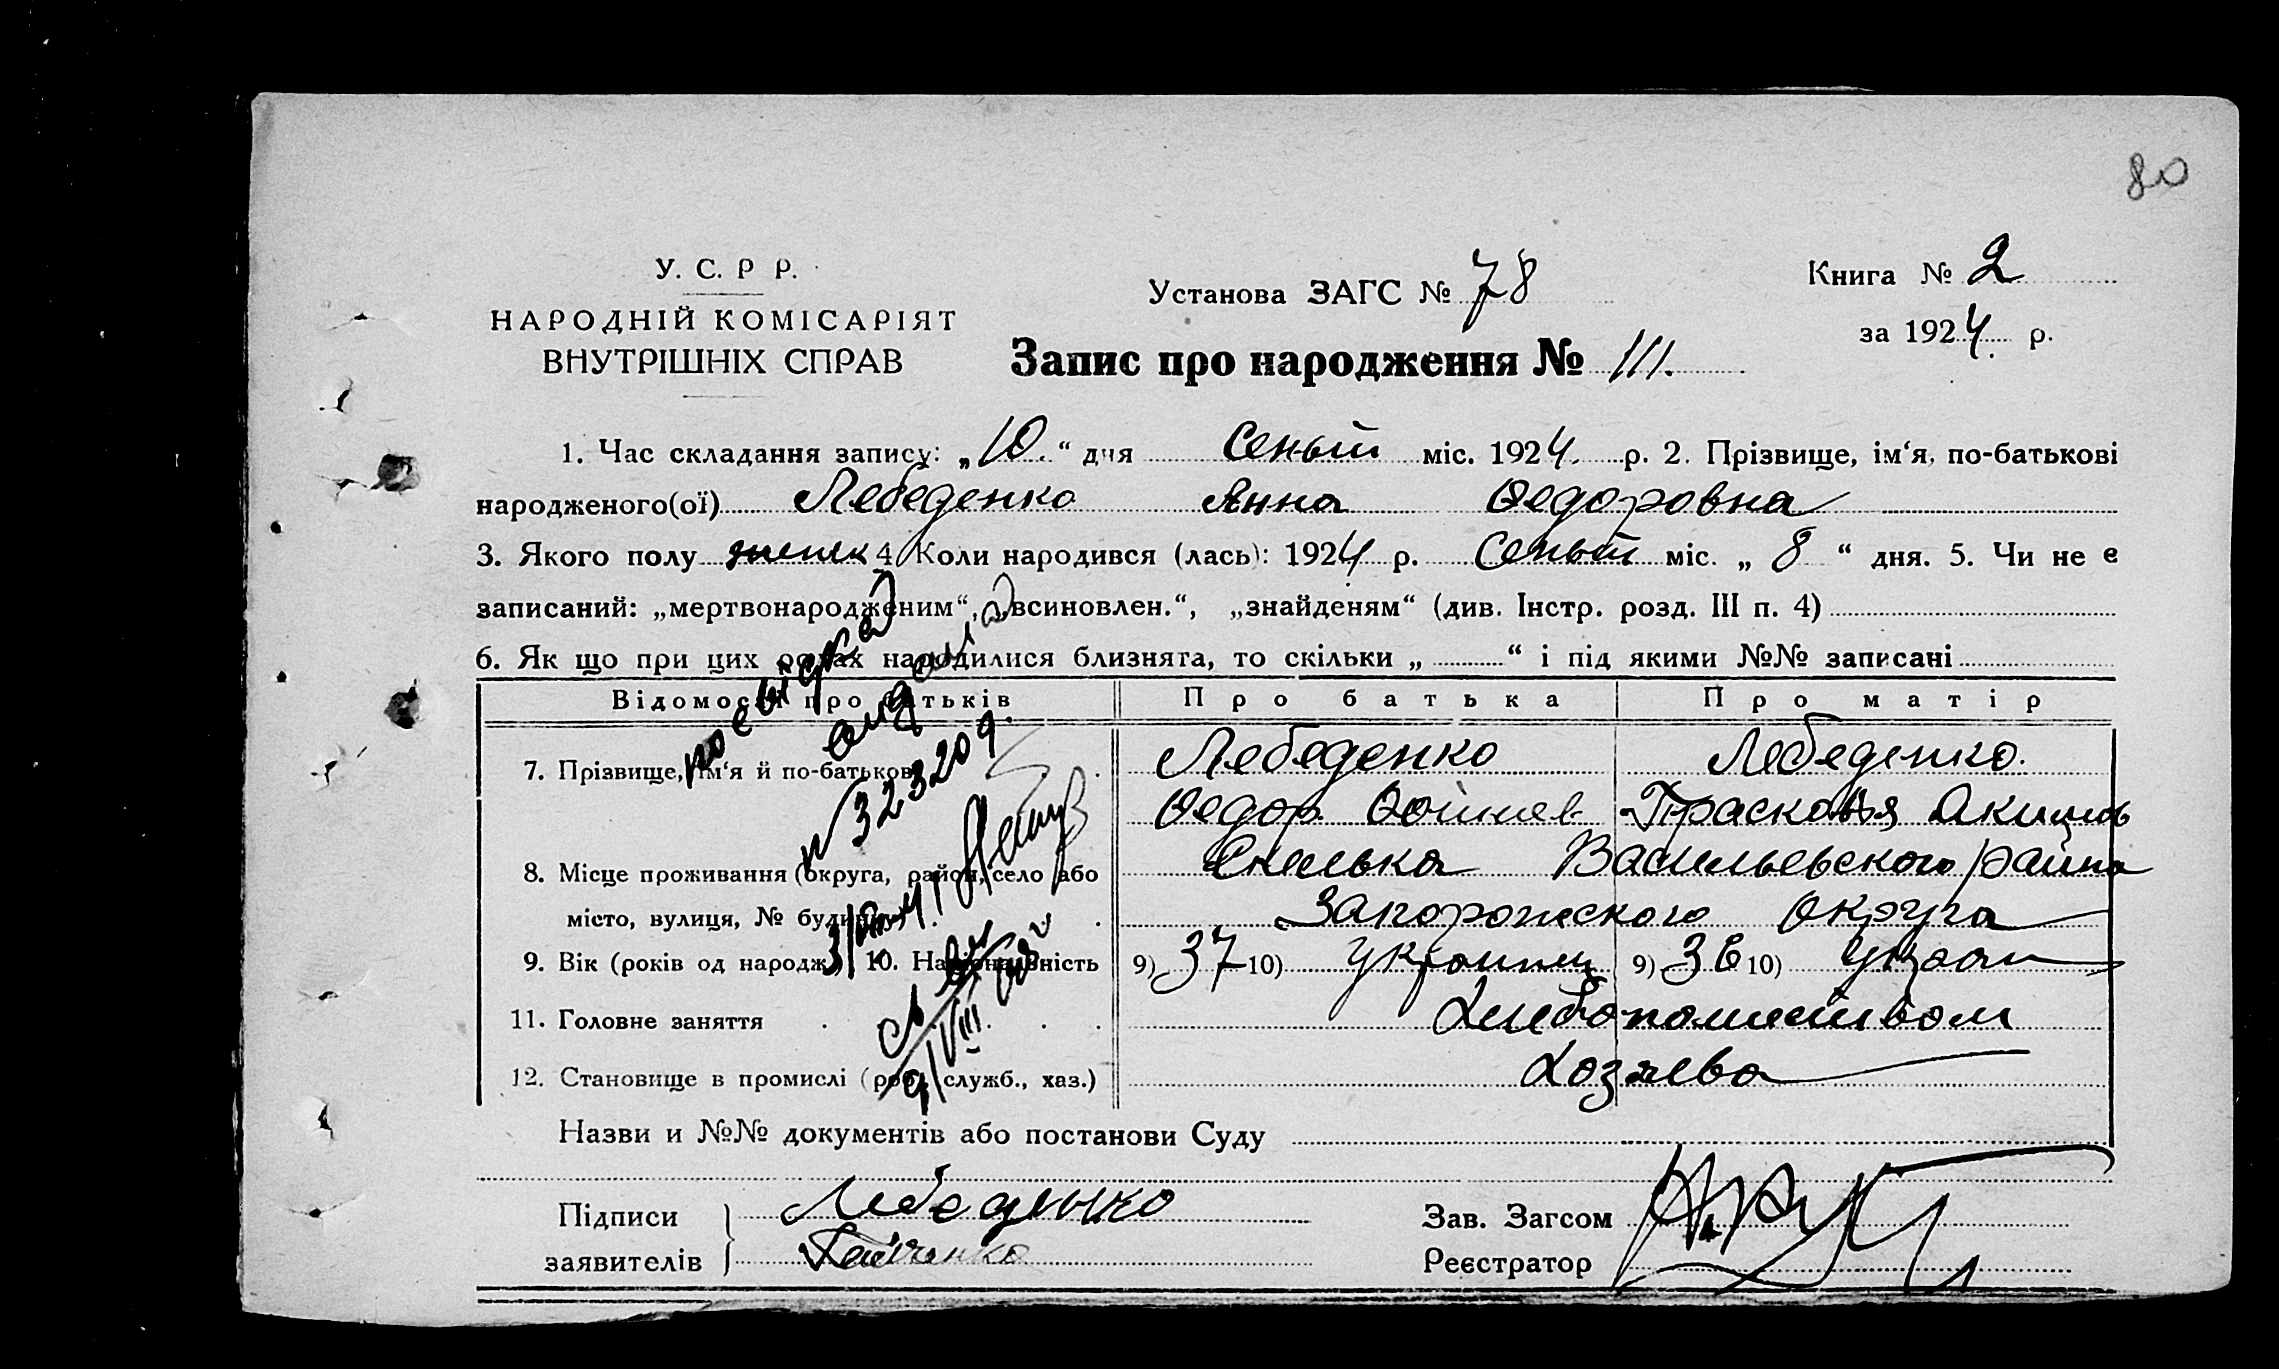 80
У. С. Р Р.
НАРОДНІЙ КОМІСАРІЯТ
ВНУТРІШНІХ СПРАВ
Установа ЗАГС № 78
Книга № 2
за 1924 р.
Запис про народження № 111.
1. Час складання запису: „10.“ дня міс. 1924. р. 2. Прізвище, ім‘я, по-батькові
народженого(ої) Лебеденко Анна Федоровна
3. Якого полу женск 4 Коли народився (лась): 1924 р. міс. „ 8 “ дня. 5. Чи не є
записаний: „мертвонародженим“, „всиновлен.“, „знайденям“ (див. Інстр. розд. III п. 4)
6. Як що при цих родах народилися близнята, то скільки „ “ і під якими №№ записані
Відомості про батьків Про батька Про матір
7. Прізвище, ім‘я й по-батькові Лебеденко Лебеденко.
Федор Прасковья
8. Місце проживання (округа, район, село або Васильевского района
місто, вулиця, № будинку) Запорожского округа
9. Вік (років од народж.) 10. Національність 9) 37 10) украинец 9) 36 10) украин
11. Головне заняття Хлебопашеством
12. Становище в промислі (роб., служб., хаз.) Хозяева
№ 323209
Назви и №№ документів або постанови Суду
Підписи Лебеденко Зав. Загсом
заявителів Реєстратор